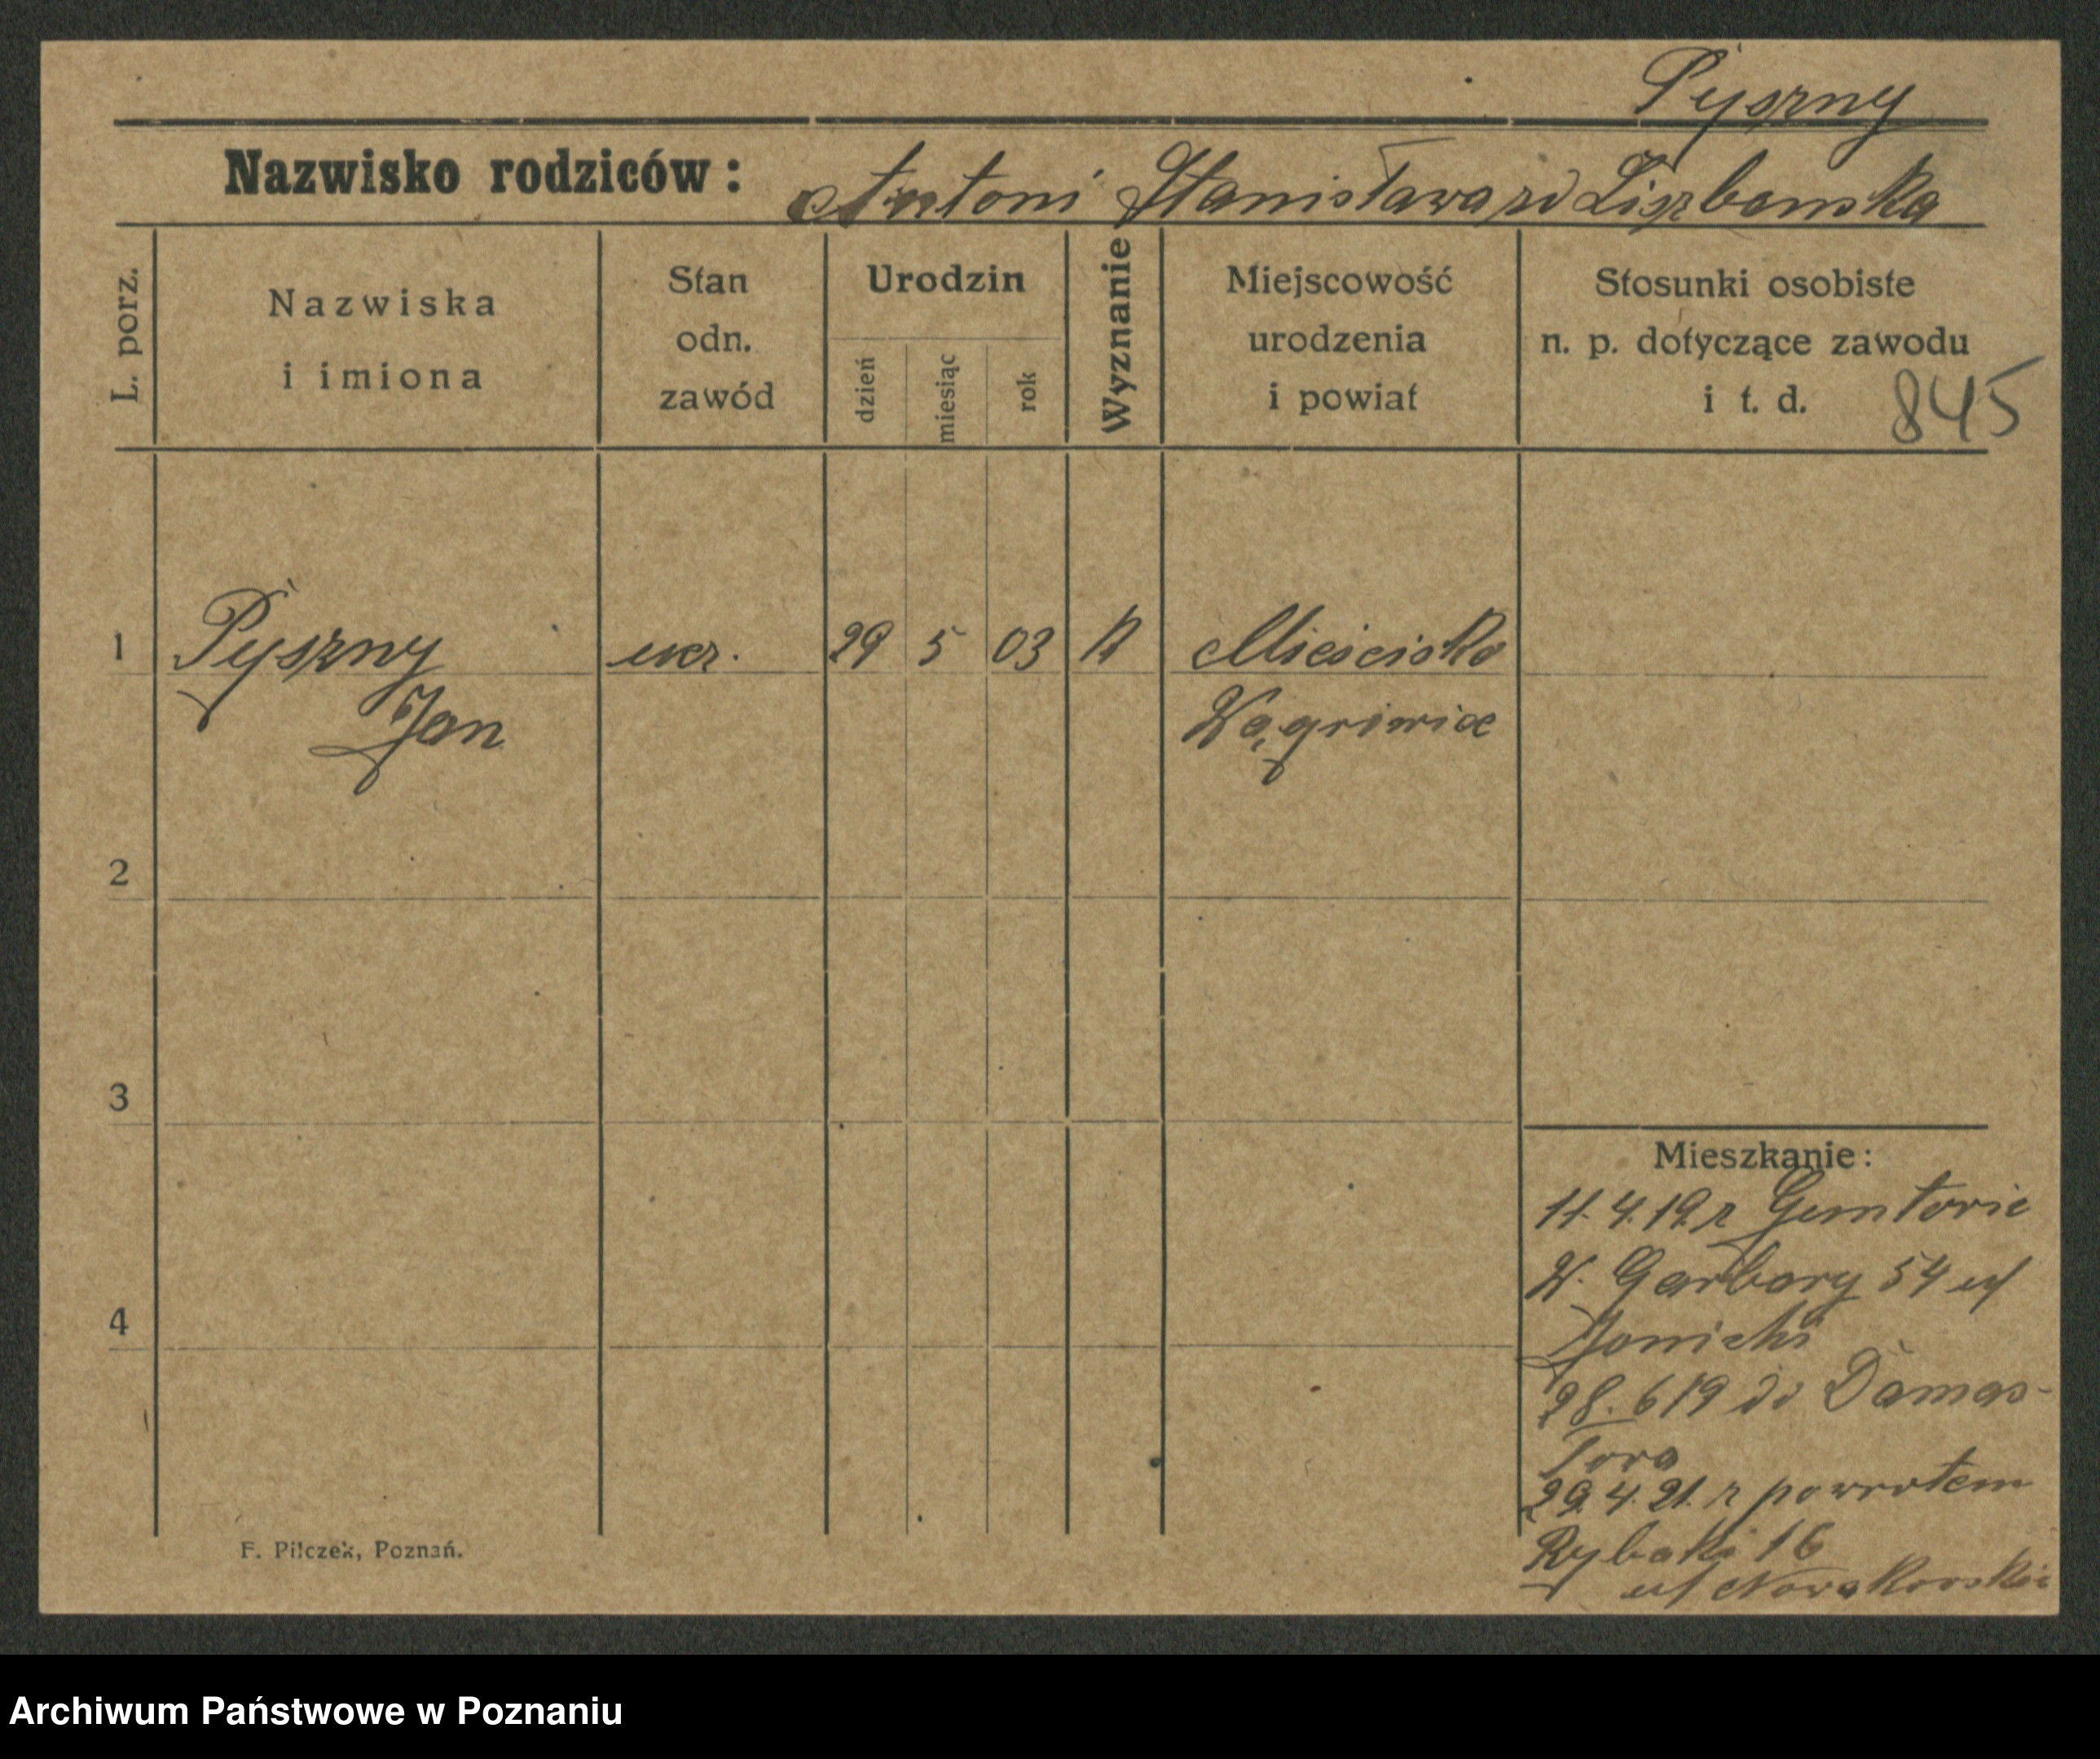 Pyszny
Nazwisko rodziców: Antoni Stanisława zd Liszbamska
L. porz.
Nazwiska
i imiona
Stan
odn.
zawód
Urodzin
dzień
miesiąc
rok
Wyznanie
Miejscowość
urodzenia
i powiat
Stosunki osobiste
n. p. dotyczące zawodu
i t. d.
845
1 Pyszny ucz. 29 5 03 K Mieścisko
Jan Wągriwice
2
3
4
Mieszkanie:
11.4.19 z
W. Garbary 54 u/
Janicki
28.6 19 do Damas-
29.4.21. z powrotem
Rybaki 16
u/ Nowakowskie
F. Pilczek, Poznań.
Archiwum Państwowe w Poznaniu